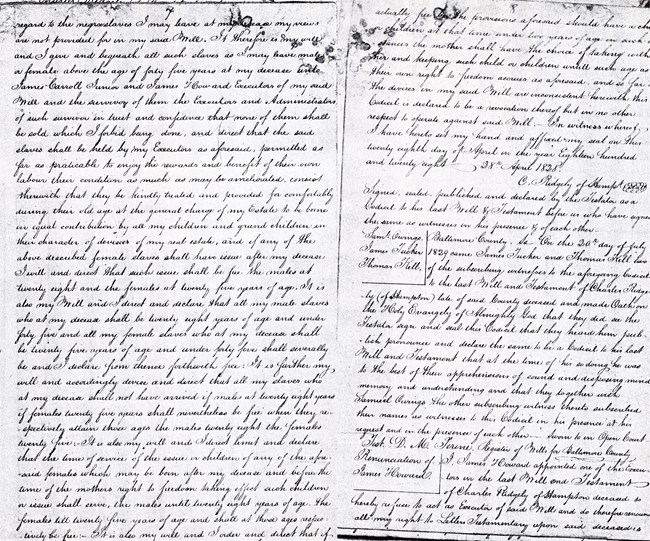 regard to the negro slaves I may leave at my decease my views
are not provided for in my said Will. It therefore is my will
and I give and bequeath all such slaves as I may leave male
or female above the age of forty five years at my decease unto
James Carroll Junior and James Howard Executors of my said
Will and the survivor of them the Executors and Administrators
of such survivor in trust and confidence that none of them shall
be sold which I forbid being done, and direct that the said
slaves shall be held by my Executors as aforesaid, permitted as
far as praticable to enjoy the rewards and benefit of their own
labour their condition as much as may be ameliorated, consist
therewith that they be kindly treated and provided for comfortably
during their old age at the general charge of my Estate to be borne
in equal contribution by all my children and grand children in
their character of devisees of my real estate, and if any of the
above described female slaves shall have issue after my decease
I will and direct that such issue shall be free the males at
twenty eight and the females at twenty five years of age. It is
also my Will and I direct and declare that all my male slaves
who at my decease shall be twenty eight years of age and under
forty five and all my female slaves who at my decease shall
be twenty five years of age and under forty five shall severally
be and I declare from thence forthwith free. It is further my
will and accordingly devise and direct that all my slaves who
at my decease shall not have arrived if males at twenty eight years
if females twenty five years shall nevertheless be free when they re-
spectively attain those ages the males twenty eight the females
twenty five :- It is also my will and I direct limit and declare
that the time of service of the issue or children of any of the afore-
said females which may be born after my decease and before the
time of the mothers right to freedom taking effect such children
or issue shall serve, the males until twenty eight years of age. the
females till twenty five years of age and shall at those ages respec-
tively be free :- It is also my will and I order and direct that if
actually free by the provisions aforesaid should have a chi
children at that time under two years of age in such
stances the mother shall have the choice of taking with
her and keeping such child or children untill such age as
their own right to freedom accrues as aforesaid, and so far
the devises in my said Will are inconsistent herewith this
Codicil is declared to be a revocation thereof but in no other
respect to operate against said Will :- In witness whereof,
I have hereto set my hand and affixed my seal on this
twenty eighth day of April in the year Eighteen hundred
and twenty eight 28th April 1828.
C. Ridgely of Hampt.
Signed, sealed, published and declared by the Testator as a
Codicil to his last Will & Testament before us who have signed
the same as witnesses in his presence & of each other.
Saml. Owings
James Tucker
Thomas Hall.
Baltimore County, sc. On the 28th day of July
1829 came James Tucker and Thomas Hall two
of the subscribing witnesses to the aforegoing Codicil
to the last Will and Testament of Charles Ridge-
ly (of Hampton) late of said County deceased and made Oath on
the Holy Evangely of Almighty God that they did see the
Testator sign and seal this Codicil that they heard him pub-
lish pronounce and declare the same to be a Codicil to his last
Will and Testament that at the time of his so doing he was
to the best of their apprehensions of sound and disposing mind
memory and understanding and that they together with
Samuel Owings the other subscribing witness thereto subscribed
their names as witnesses to this Codicil in his presence at his
request and in the presence of each other - Sworn in Open Court
Test. D. M. Register of Wills for Baltimore County
Renunciation of
James Howard.
I, James Howard appointed one of the Execu-
tors in the last Will and Testament
of Charles Ridgely of Hampton deceased do
hereby refuse to act as Executor of said Will and do therefore renounce
all my right to Letters Testamentary upon said deceased's